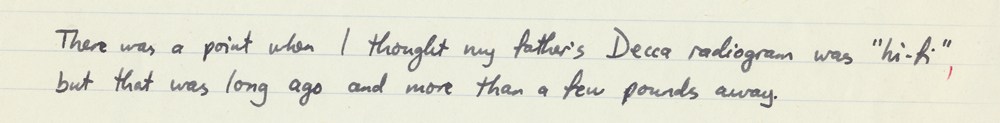 There was a point when I thought my father's Decca radiogram was "hi-fi",
but that was long ago and more than a few pounds away.